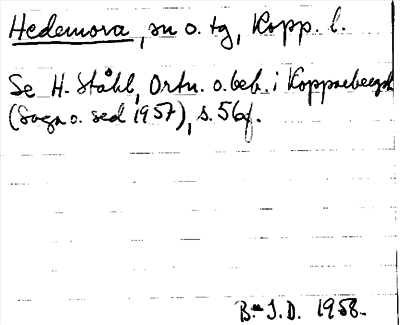 Hedemora, sn o. tg, Kopp. l.
Se H. Ståhl, Ortn. o. beb. i Kopparbergsl
(Saga o. sed 1957), s. 56f.
B. J. D. 1958.